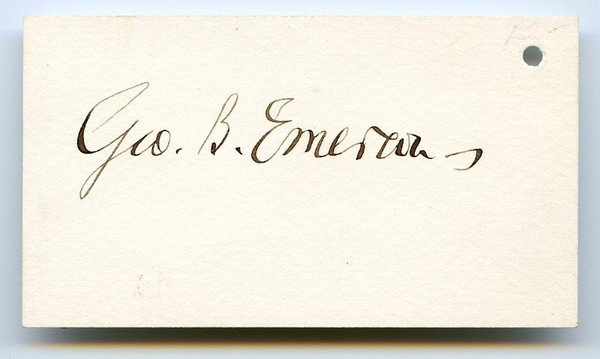 Geo. B. Emerson